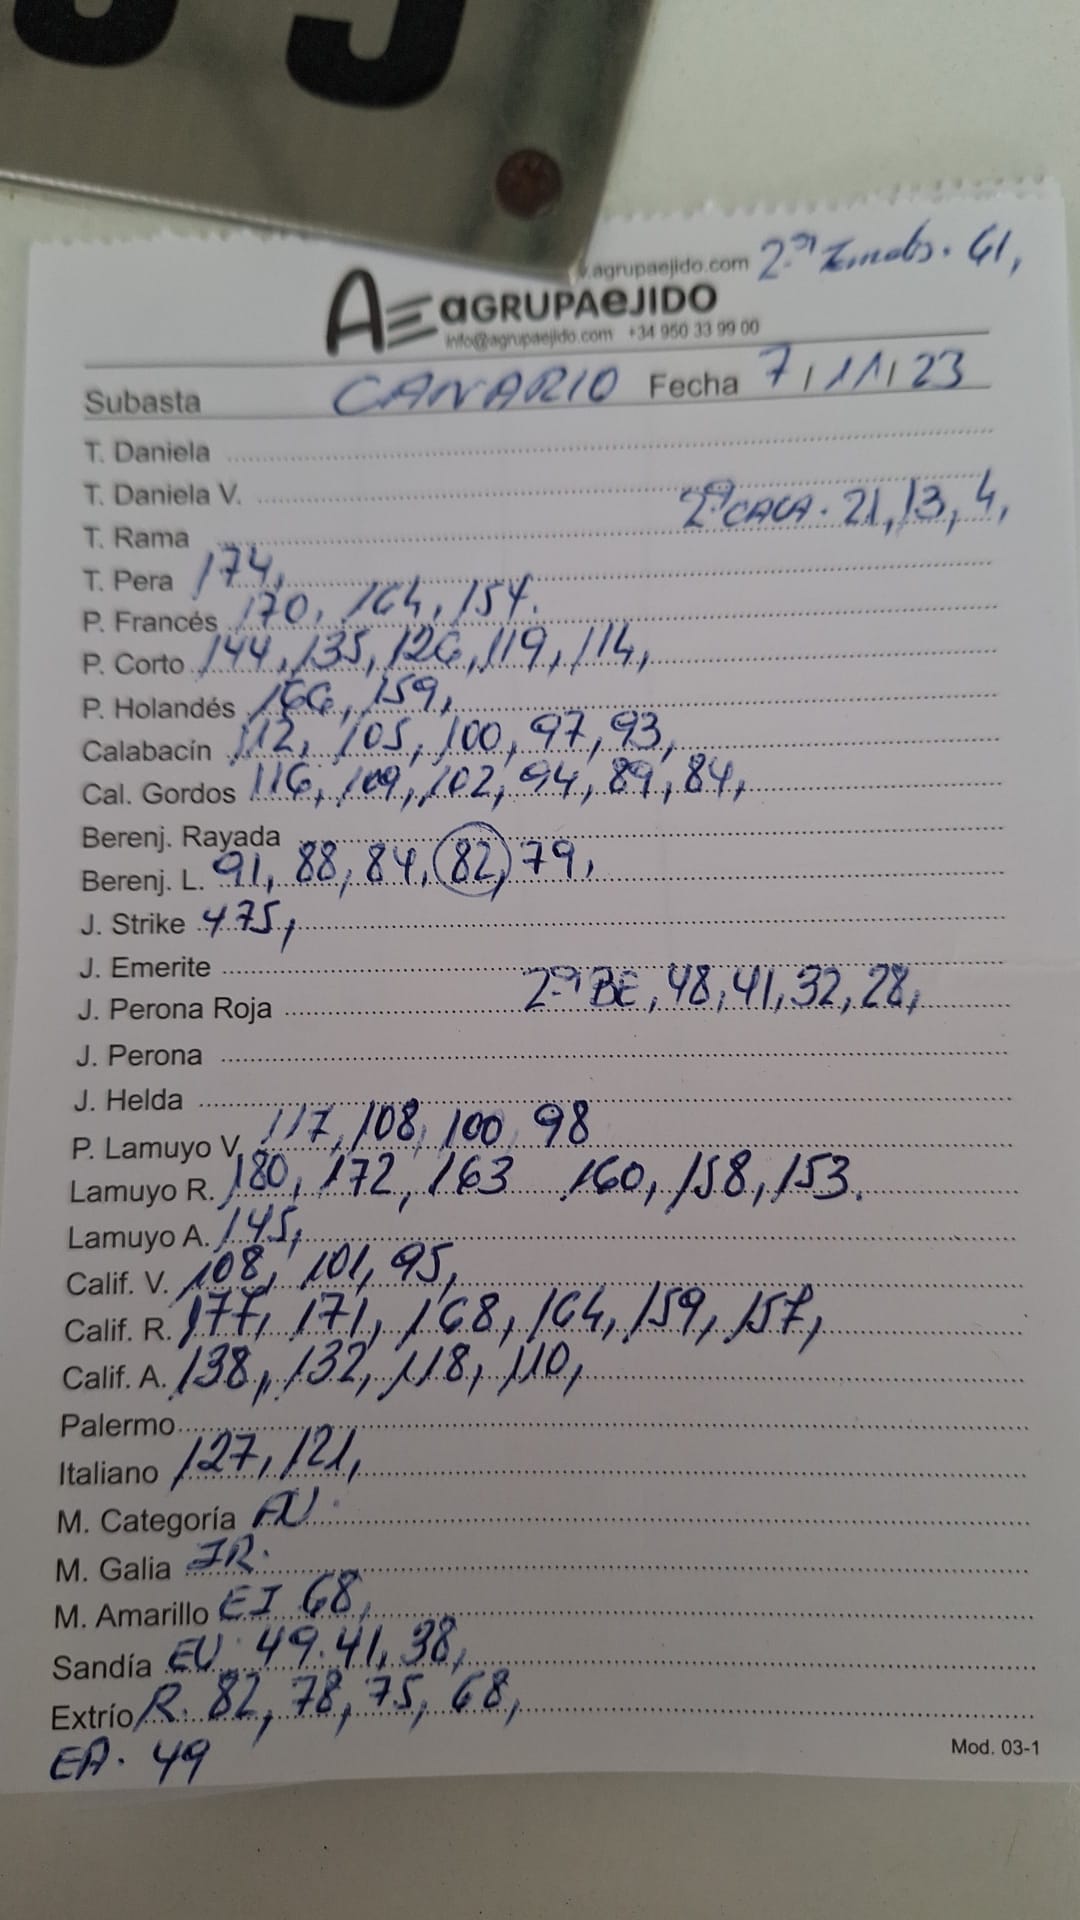 .agrupaejido.com
AGRUPAEJIDO
info@agrupaejido.com +34 950 33 99 00
Subasta CANARIO Fecha 7/11/23
T. Daniela
T. Daniela V.
2ª CALA. 21, 13, 4,
T. Rama
T. Pera 174,
P. Francés 170, 164, 154.
P. Corto 144, 135, 126, 119, 114,
P. Holandés 166, 159,
Calabacín 112, 105, 100, 97, 93,
Cal. Gordos 116, 109, 102, 94, 89, 84,
Berenj. Rayada
Berenj. L. 91, 88, 84, 82, 79,
J. Strike 475,
J. Emerite
J. Perona Roja 2ª BE, 48, 41, 32, 28,
J. Perona
J. Helda
P. Lamuyo V. 117, 108, 100, 98
Lamuyo R. 180, 172, 163 160, 158, 153.
Lamuyo A. 145,
Calif. V. 108, 101, 95,
Calif. R. 177, 171, 168, 164, 159, 157,
Calif. A. 138, 132, 118, 110,
Palermo
Italiano 127, 121,
M. Categoría
M. Galia
M. Amarillo EI 68,
Sandía EV 49. 41, 38,
Extrío R. 82, 78, 75, 68,
EA. 49
Mod. 03-1